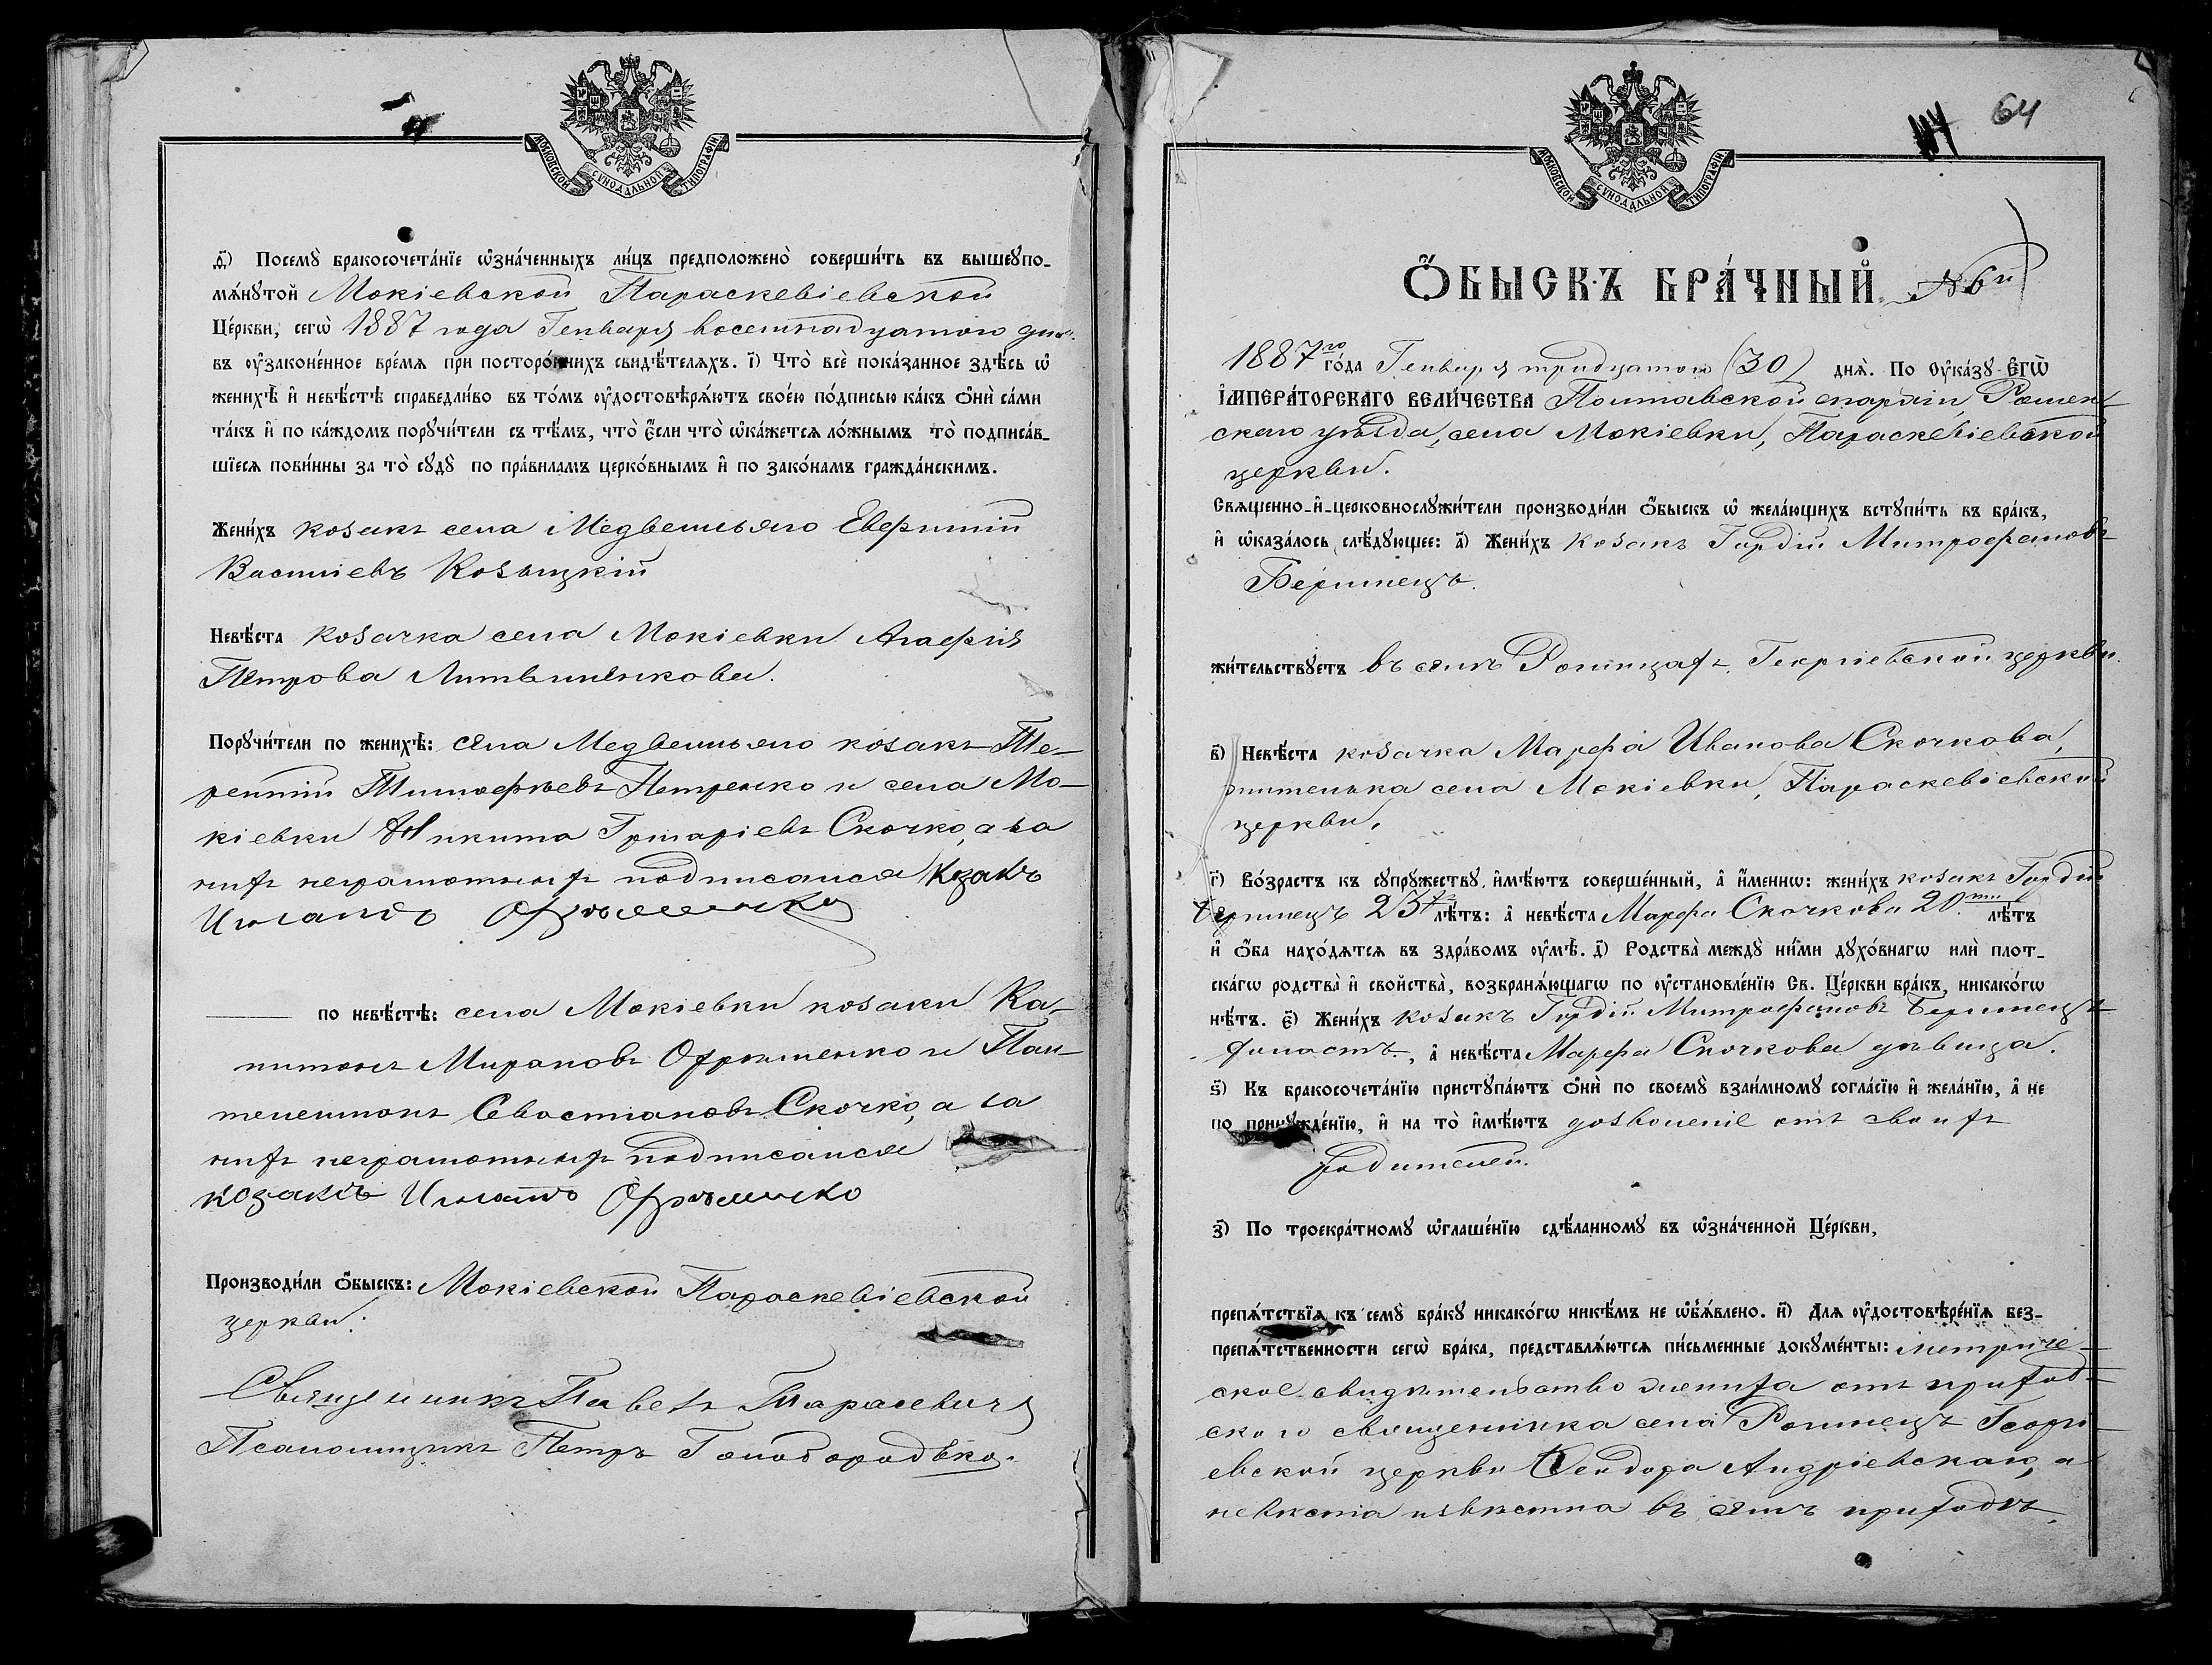 МОСКОВСКОЙ СѴНОДАЛЬНОЙ ТИПОГРАФІИ.
ѳ҃) Посемꙋ̀ бракосочета́нїе ѡ҆зна́ченныхъ ли́цъ предположено̀ соверши́ть въ вышеꙋпо-
мѧ́нꙋтой Мокіевской Параскевіевской
Це́ркви, сегѡ̀ 1887 года Генваря восемнадцатого дня
въ оу҆законе́нное вре́мѧ при посторо́ннихъ свидѣ́телѧхъ. і҃) Что̀ всѐ пока́занное здѣ́сь ѡ҆
женихѣ̀ и҆ невѣ́стѣ справедли́во въ то́мъ оу҆достовѣрѧ́ютъ свое́ю по́дписью ка́къ ѻ҆нѝ са́ми
та́къ и҆ по ка́ждомъ порꙋчи́тели съ тѣ́мъ, что̀ є҆́сли что̀ ѡ҆ка́жетсѧ ло́жнымъ то̀ подписа́в-
шїесѧ пови́нны за то̀ сꙋдꙋ̀ по пра́виламъ церко́внымъ и҆ по зако́намъ гражда́нскимъ.
Жени́хъ козакъ села Медвежьяго Евфимій
Василіевъ Козицкій
Невѣ́ста козачка села Мокіевки Агафія
Петрова Литвиненкова.
Порꙋчи́тели по женихѣ̀: села Медвежьяго козакъ Те-
рентій Тимофѣевъ Петренко и села Мо-
кіевки Никита Григоріевъ Скочко, а за
нихъ неграмотныхъ подписался Кзакъ
Игнатъ Охрѣменко
по невѣ́стѣ: села Мокіевки козаки Ка-
питонъ Мироновъ Охрѣменко и Пан-
телеимонъ Севастіановъ Скочко, а за
нихъ неграмотныхъ подписался
козакъ Игнатъ Охрѣменко
Производи́ли ѻ҆́быскъ: Мокіевской Параскевіевской
церкви:
Священникъ Павелъ Тарасевичъ
Псаломщикъ Петръ Голобородько.
64
МОСКОВСКОЙ СѴНОДАЛЬНОЙ ТИПОГРАФІИ.
Ѻ҆́БЫСКЪ БРА́ЧНЫЙ № 6й
1887го го́да Генваря тридцатого (30) днѧ̀. По Оу҆ка́зꙋ Є҆гѡ̀
І҆МПЕРА́ТОРСКАГО ВЕЛИ́ЧЕСТВА Полтавской епархіи, Ромен-
скаго уѣзда, села Мокіевки, Параскевіевской
церкви.
Свѧщенно-и҆-церковнослꙋжи́тели производи́ли ѻ҆́быскъ ѡ҆ жела́ющихъ встꙋпи́ть въ бра́къ,
и҆ ѡ҆каза́лось слѣ́дꙋющее: а҃) Жени́хъ козакъ Гордій Митрофановъ
жи́тельствꙋетъ въ селѣ Ромнцахъ, Георгіевской церкви.
в҃) Невѣ́ста козачка Марфа Иванова Скочкова,
жителька села Мокіевки, Параскевіевской
церкви.
г҃) Во́зрастъ къ сꙋпрꙋ́жествꙋ и҆мѣ́ютъ соверше́нный, а҆ и҆́меннѡ: жени́хъ козакъ Гордій
лѣ́тъ: а҆ невѣ́ста Марфа Скочкова 20ти лѣ́тъ
и҆ ѻ҆́ба нахо́дѧтсѧ въ здра́вомъ оу҆мѣ̀. д҃) Родства̀ междꙋ̀ ни́ми дꙋхо́внагѡ и҆лѝ плот-
ска́гѡ родства̀ и҆ свойства̀, возбранѧ́ющагѡ по оу҆становле́нїю Св. Це́ркви бра́къ, никако́гѡ
нѣ́тъ. є҃) Жени́хъ козакъ Гордій Митрофановъ
холостъ, а҆ невѣ́ста Марфа Скочкова дѣвица.
ѕ҃) Къ бракосочета́нїю пристꙋпа́ютъ ѻ҆нѝ по своемꙋ̀ взаи́мномꙋ согла́сїю и҆ жела́нїю, а҆ не
по принꙋжде́нїю, и҆ на то̀ и҆мѣ́ютъ дозволеніе отъ своихъ
родителей.
з҃) По троекра́тномꙋ ѡ҆глаше́нїю сдѣ́ланномꙋ въ ѡ҆зна́ченной Це́ркви,
препѧ́тствїѧ къ семꙋ̀ бра́кꙋ никако́гѡ никѣ́мъ не ѡ҆б̾ѧ́влено. и҃) Длѧ оу҆достовѣре́нїѧ без-
препѧ́тственности сегѡ̀ бра́ка, представлѧ́ютсѧ пи́сьменные докꙋме́нты: метриче-
ское свидѣтельство жениха отъ приход-
ского священника села Ромнецъ Георгі-
евской церкви Ѳеодора Андріевскаго, а
невѣста извѣстна въ семъ приходѣ.